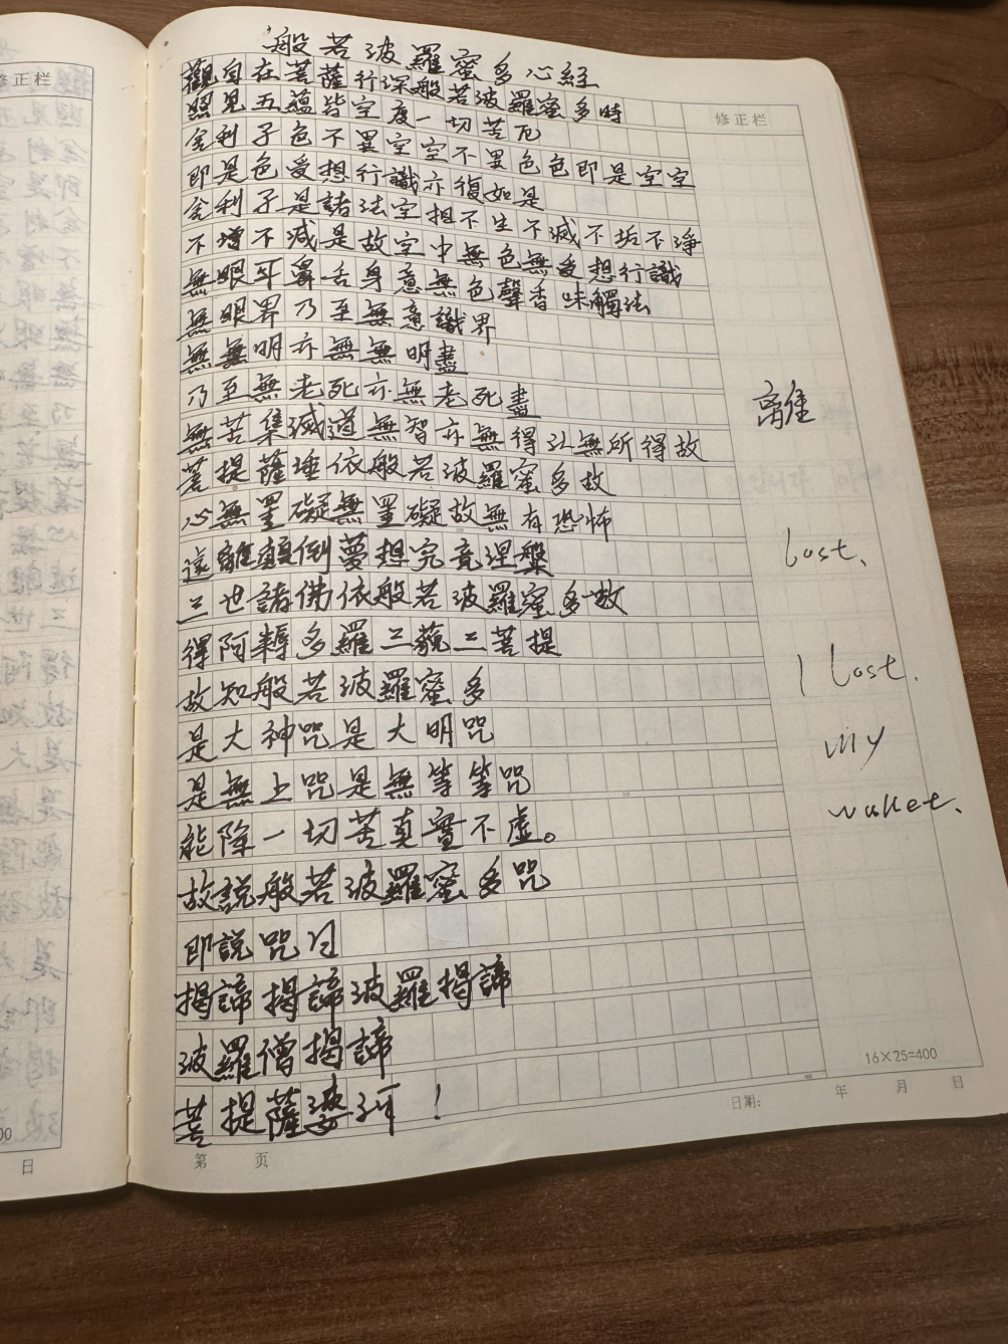 般若波羅蜜多心經
觀自在菩薩行深般若波羅蜜多時
照見五蘊皆空度一切苦厄
舍利子色不異空空不異色色即是空空
即是色受想行識亦復如是
舍利子是諸法空相不生不滅不垢不淨
不增不減是故空中無色無受想行識
無眼耳鼻舌身意無色聲香味觸法
無眼界乃至無意識界
無無明亦無無明盡
乃至無老死亦無老死盡
無苦集滅道無智亦無得以無所得故
菩提薩埵依般若波羅蜜多故
心無罣礙無罣礙故無有恐怖
遠離顛倒夢想究竟涅槃
三世諸佛依般若波羅蜜多故
得阿耨多羅三藐三菩提
故知般若波羅蜜多
是大神咒是大明咒
是無上咒是無等等咒
能除一切苦真實不虛。
故說般若波羅蜜多咒
即說咒曰
揭諦揭諦波羅揭諦
波羅僧揭諦
菩提薩婆訶!
修正栏
離
lost.
I lost.
my
wallet.
16×25=400
日期: 年 月 日
第 页
修正栏
日